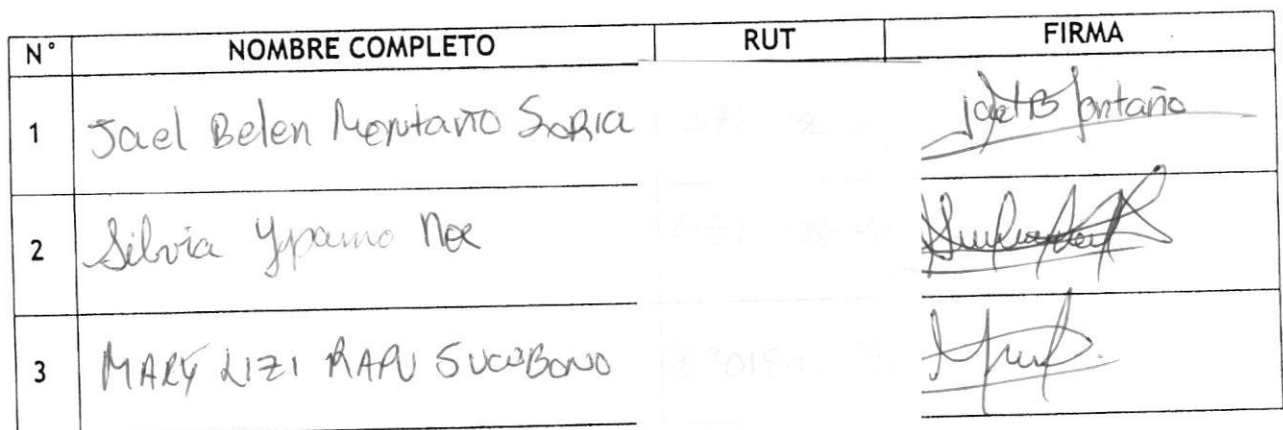 N° NOMBRE COMPLETO RUT FIRMA
1 Jael Belen Montaño Soria Jael B Montaño
2 Silvia Ypamo Noe
3 MARY LIZI RAPU SUCUBONO